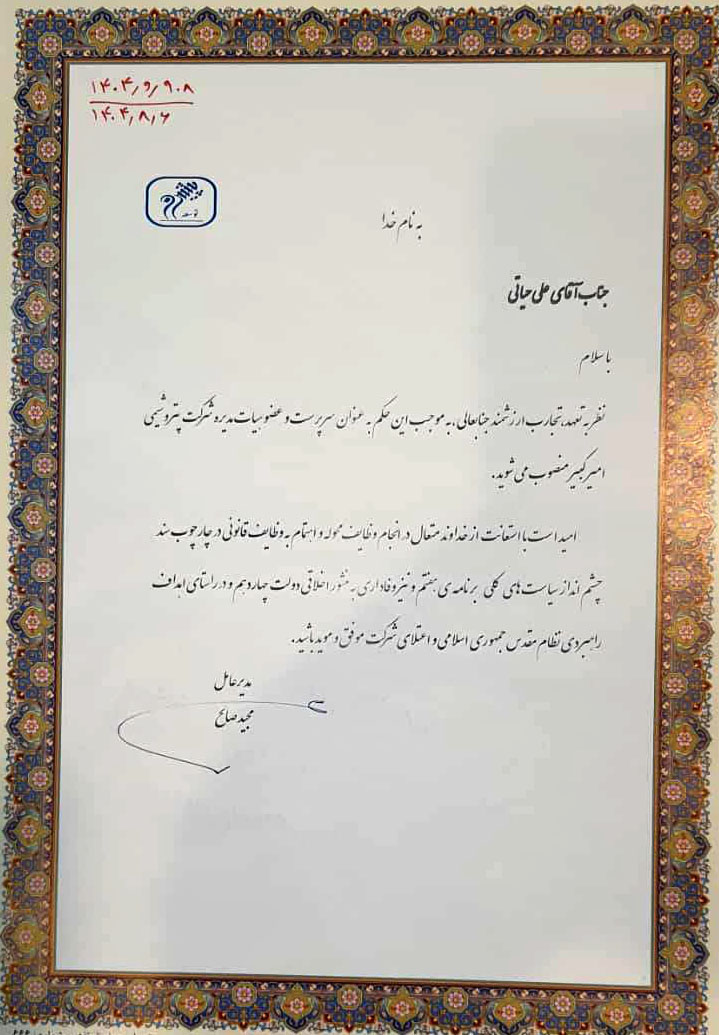 ۱۴۰۴/۹/۹۰۸
۱۴۰۴/۸/۶
پیشرو
توسعه
به نام خدا
جناب آقای علی حیاتی
با سلام
نظر به تعهد، تجارب ارزشمند جنابعالی، به موجب این حکم به عنوان سرپرست و عضو هیات مدیره شرکت پتروشیمی
امیر کبیر منصوب می شوید.
امید است با استعانت از خداوند متعال در انجام وظایف محوله و اهتمام به وظایف قانونی در چارچوب سند
چشم انداز سیاست های کلی برنامه ی هفتم و نیز وفاداری به منشور اخلاقی دولت چهاردهم و در راستای اهداف
راهبردی نظام مقدس جمهوری اسلامی و اعتلای شرکت موفق و موید باشید.
مدیرعامل
مجید صالح